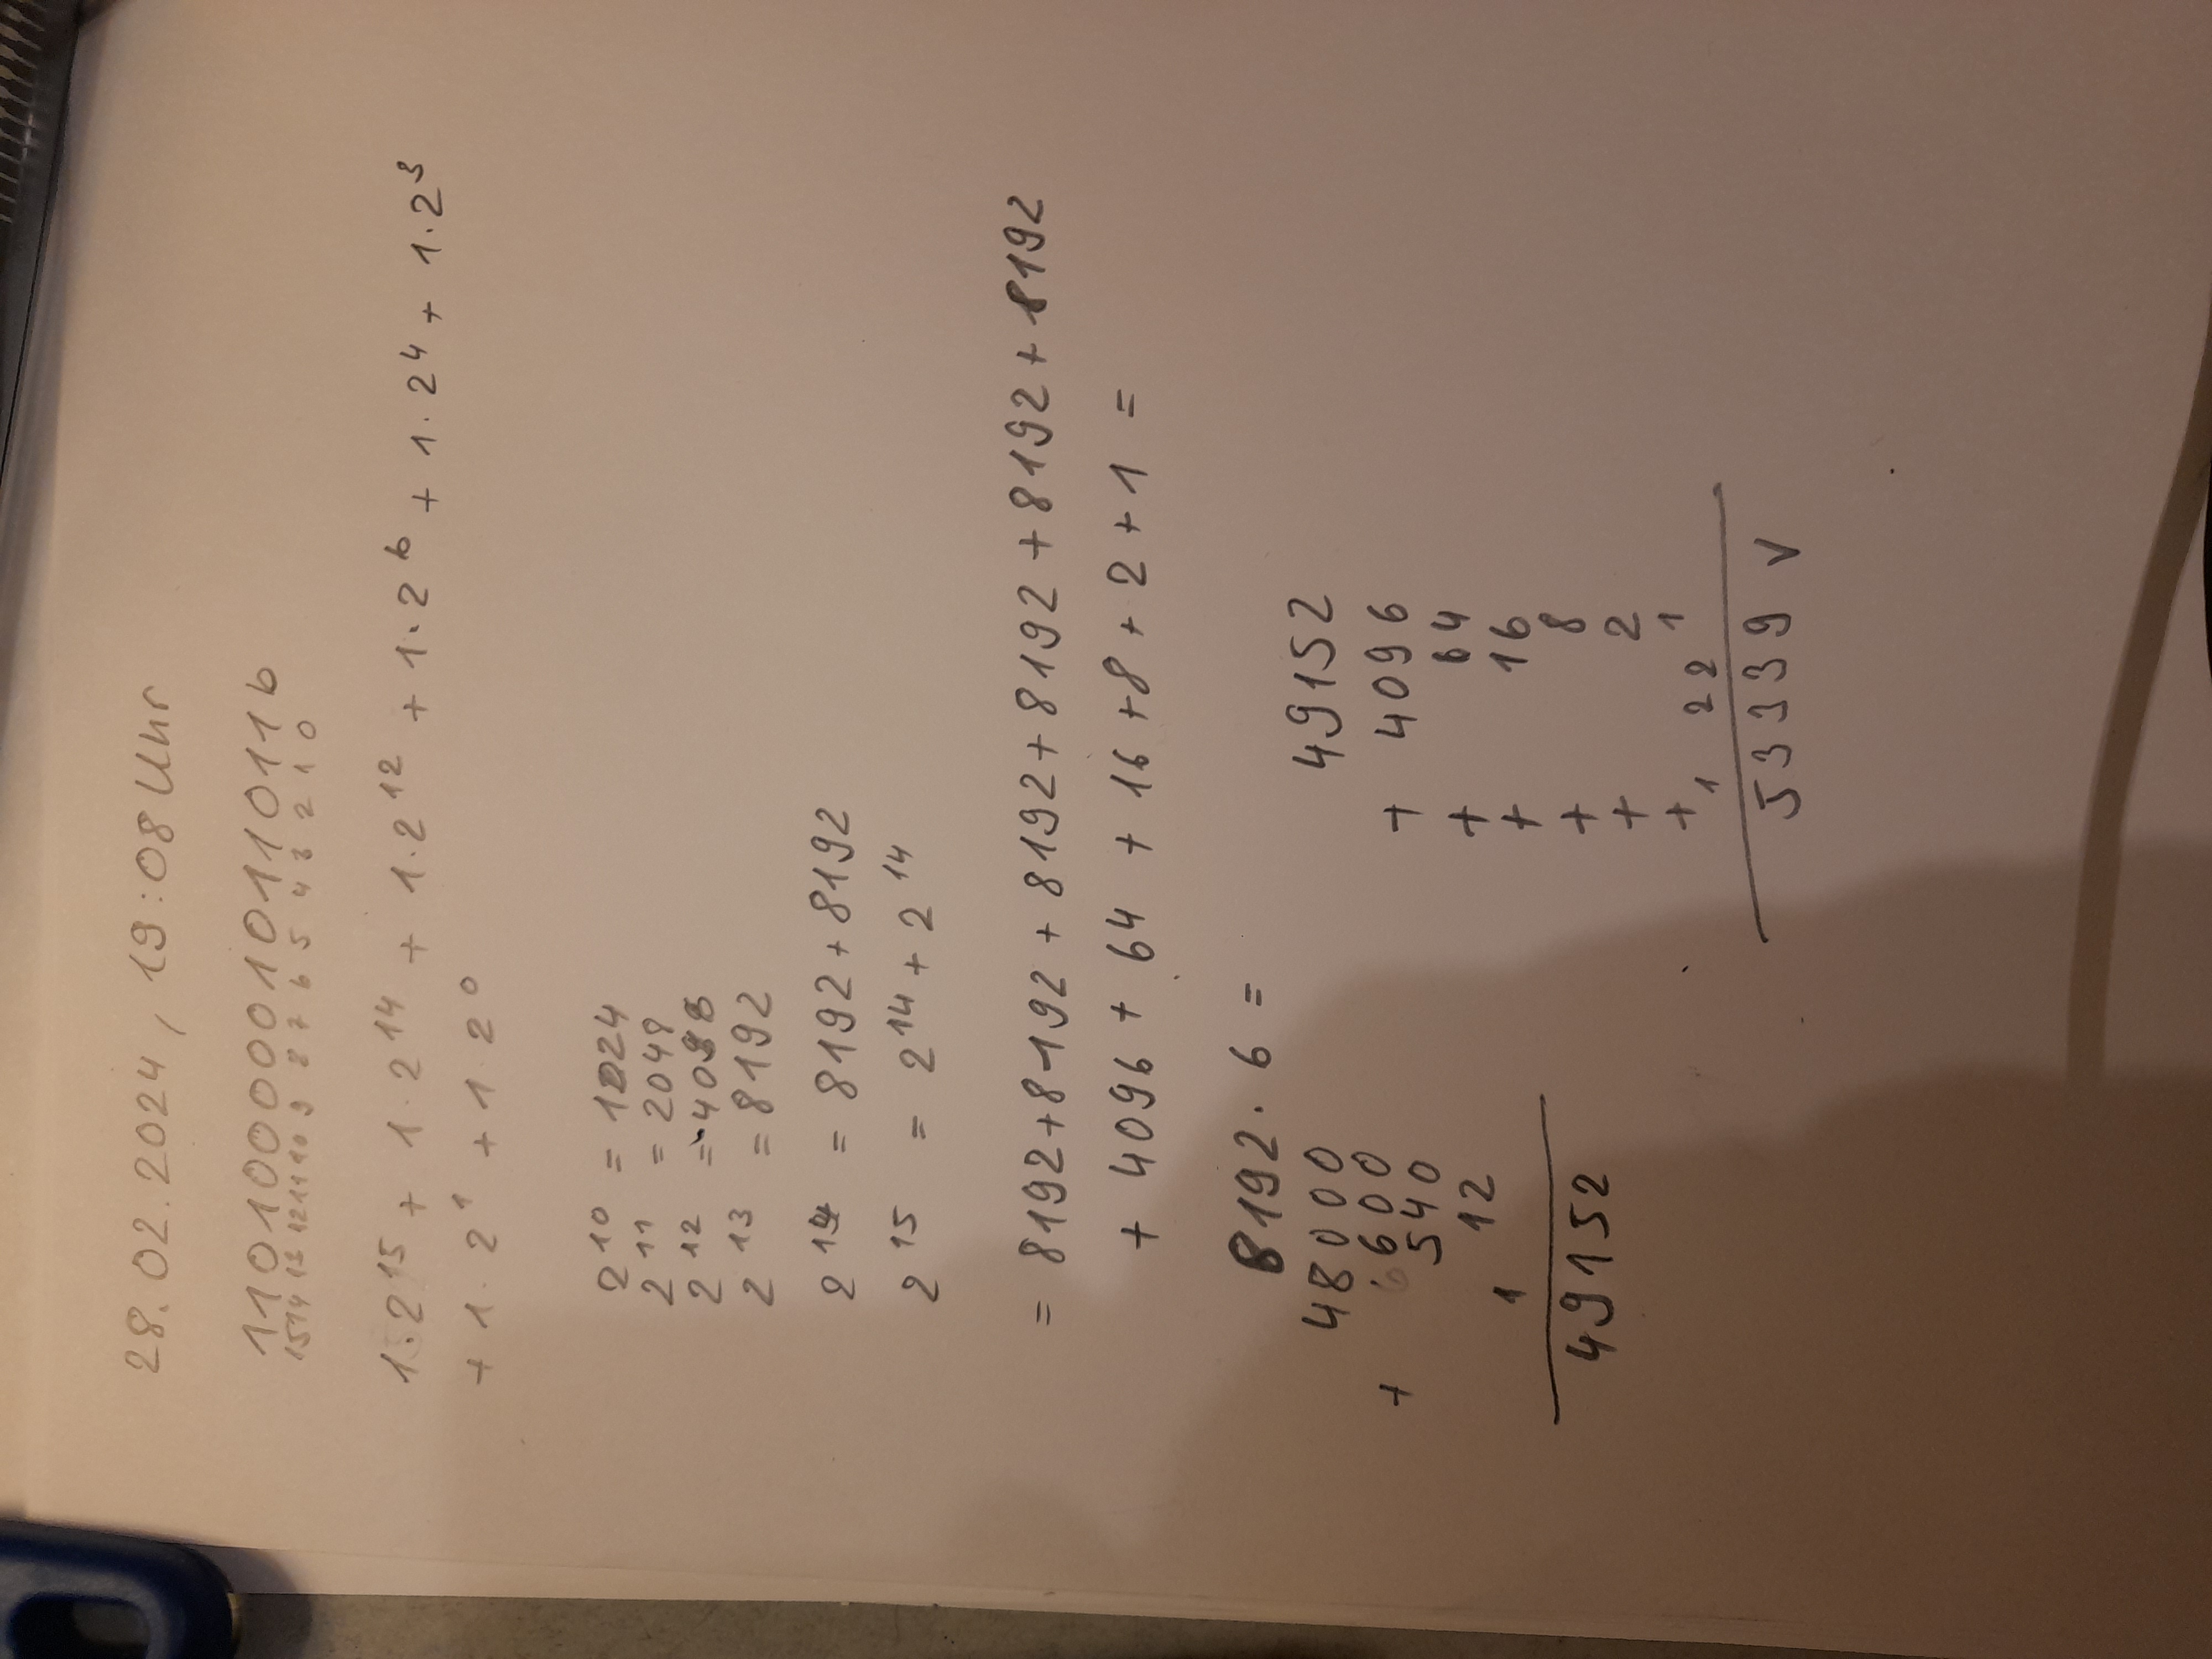 28.02.2024, 19:08 Uhr
1101000001011011b
15 14 13 12 11 10 9 8 7 6 5 4 3 2 1 0
1·2¹⁵ + 1·2¹⁴ + 1·2¹² + 1·2⁶ + 1·2⁴ + 1·2³
+ 1·2¹ + 1·2⁰
2¹⁰ = 1024
2¹¹ = 2048
2¹² = 4096
2¹³ = 8192
2¹⁴ = 8192 + 8192
2¹⁵ = 2¹⁴ + 2¹⁴
= 8192 + 8192 + 8192 + 8192 + 8192 + 8192 + 8192
+ 4096 + 64 + 16 + 8 + 2 + 1 =
8192 · 6 =
48000
+ 600
540
12
1
49152
49152
+ 4096
+ 64
+ 16
+ 8
+ 2
+ 1
1 2 2
53339 v